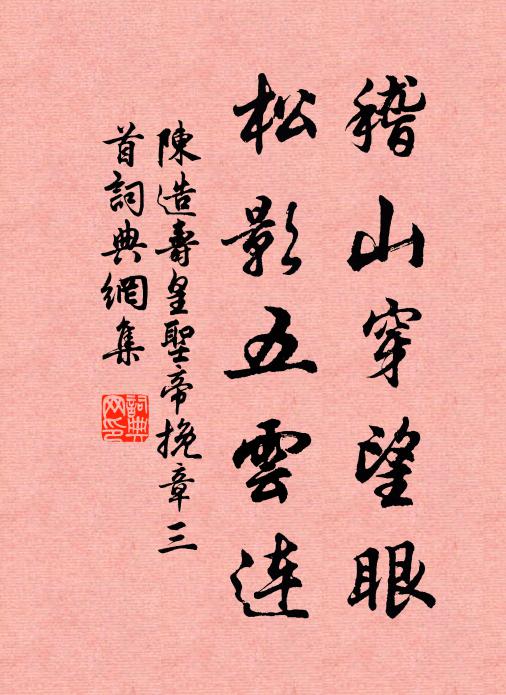 稽山穿望眼
松影五雲連
陳造壽皇聖帝挽章三
首詞典網集
詞典网印